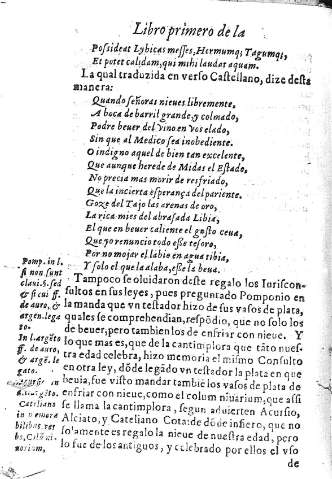 Libro primero de la
Possideat Lybicas messes, Hermumq; Tagumq;,
Et potet calidam, qui mihi laudat aquam.
La qual traduzida en verso Castellano, dize desta
manera:
Quando señoras nieues libremente,
A boca de barril grande, y colmado,
Podre beuer del vino en vos elado,
Sin que al Medico sea inobediente.
O indigno aquel de bien tan excelente,
Que aunque herede de Midas el Estado,
No precia mas morir de resfriado,
Que la incierta esperança del pariente.
Goze del Tajo las arenas de oro,
La rica mies del abrasada Libia,
El que en beuer caliente el gusto ceua,
Que yo renuncio todo esse tesoro,
Por no mojar el labio en agua tibia,
Y solo el que la alaba, esse la beua.
Tampoco se oluidaron deste regalo los Iuriscon-
sultos en sus leyes, pues preguntado Pomponio en
la manda que vn testador hizo de sus vasos de plata,
quales se comprehendian, respõdio, que no solo los
de beuer, pero tambien los de enfriar con nieue. Y
lo que mas es, que de la cantimplora que tãto nues-
tra edad celebra, hizo memoria el mismo Consulto
en otra ley, dõde legado vn testador la plata en que
beuia, fue visto mandar tambiẽ los vasos de plata de
enfriar con nieue, como el colum niuarium, que assi
se llama la cantimplora, segun aduierten Acursio,
Alciato, y Cateliano Cota: dõde infiero, que no
solamente es regalo la nieue de nuestra edad, pero
lo fue de los antiguos, y celebrado por ellos el vso
de
Pomp. in l.
si non sunt
claui. §. sed
& si cui ff.
de auro, &
argen. lega
to.
In l. argẽto
ff. de auro,
& argẽ. le
gato.
Cateliano
in memora
bilibus. ver
bo,